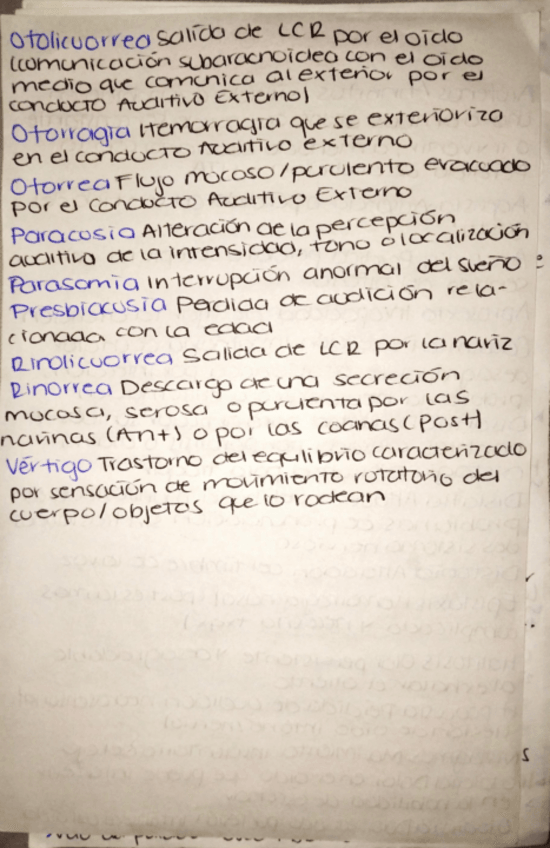 Otolicuorrea Salida de LCR por el oido
(comunicación subaracnoidea con el oido
medio que comunica al exterior por el
conducto Auditivo Externo)
Otorragia Hemorragia que se exterioriza
en el conducto Auditivo externo
Otorrea Flujo mucoso/purulento evacuado
por el conducto Auditivo Externo
Paracusia Alteración de la percepción
auditiva de la intensidad, tono o localización
Parasomia Interrupción anormal del sueño
Presbiacusia Perdida de audición rela-
cionada con la edad
Rinolicuorrea Salida de LCR por la nariz
Rinorrea Descarga de una secreción
mucosa, serosa o purulenta por las
narinas (Ant) o por las coanas (Post)
Vértigo Trastorno del equilibrio caracterizado
por sensación de movimiento rotatorio del
cuerpo/objetos que lo rodean